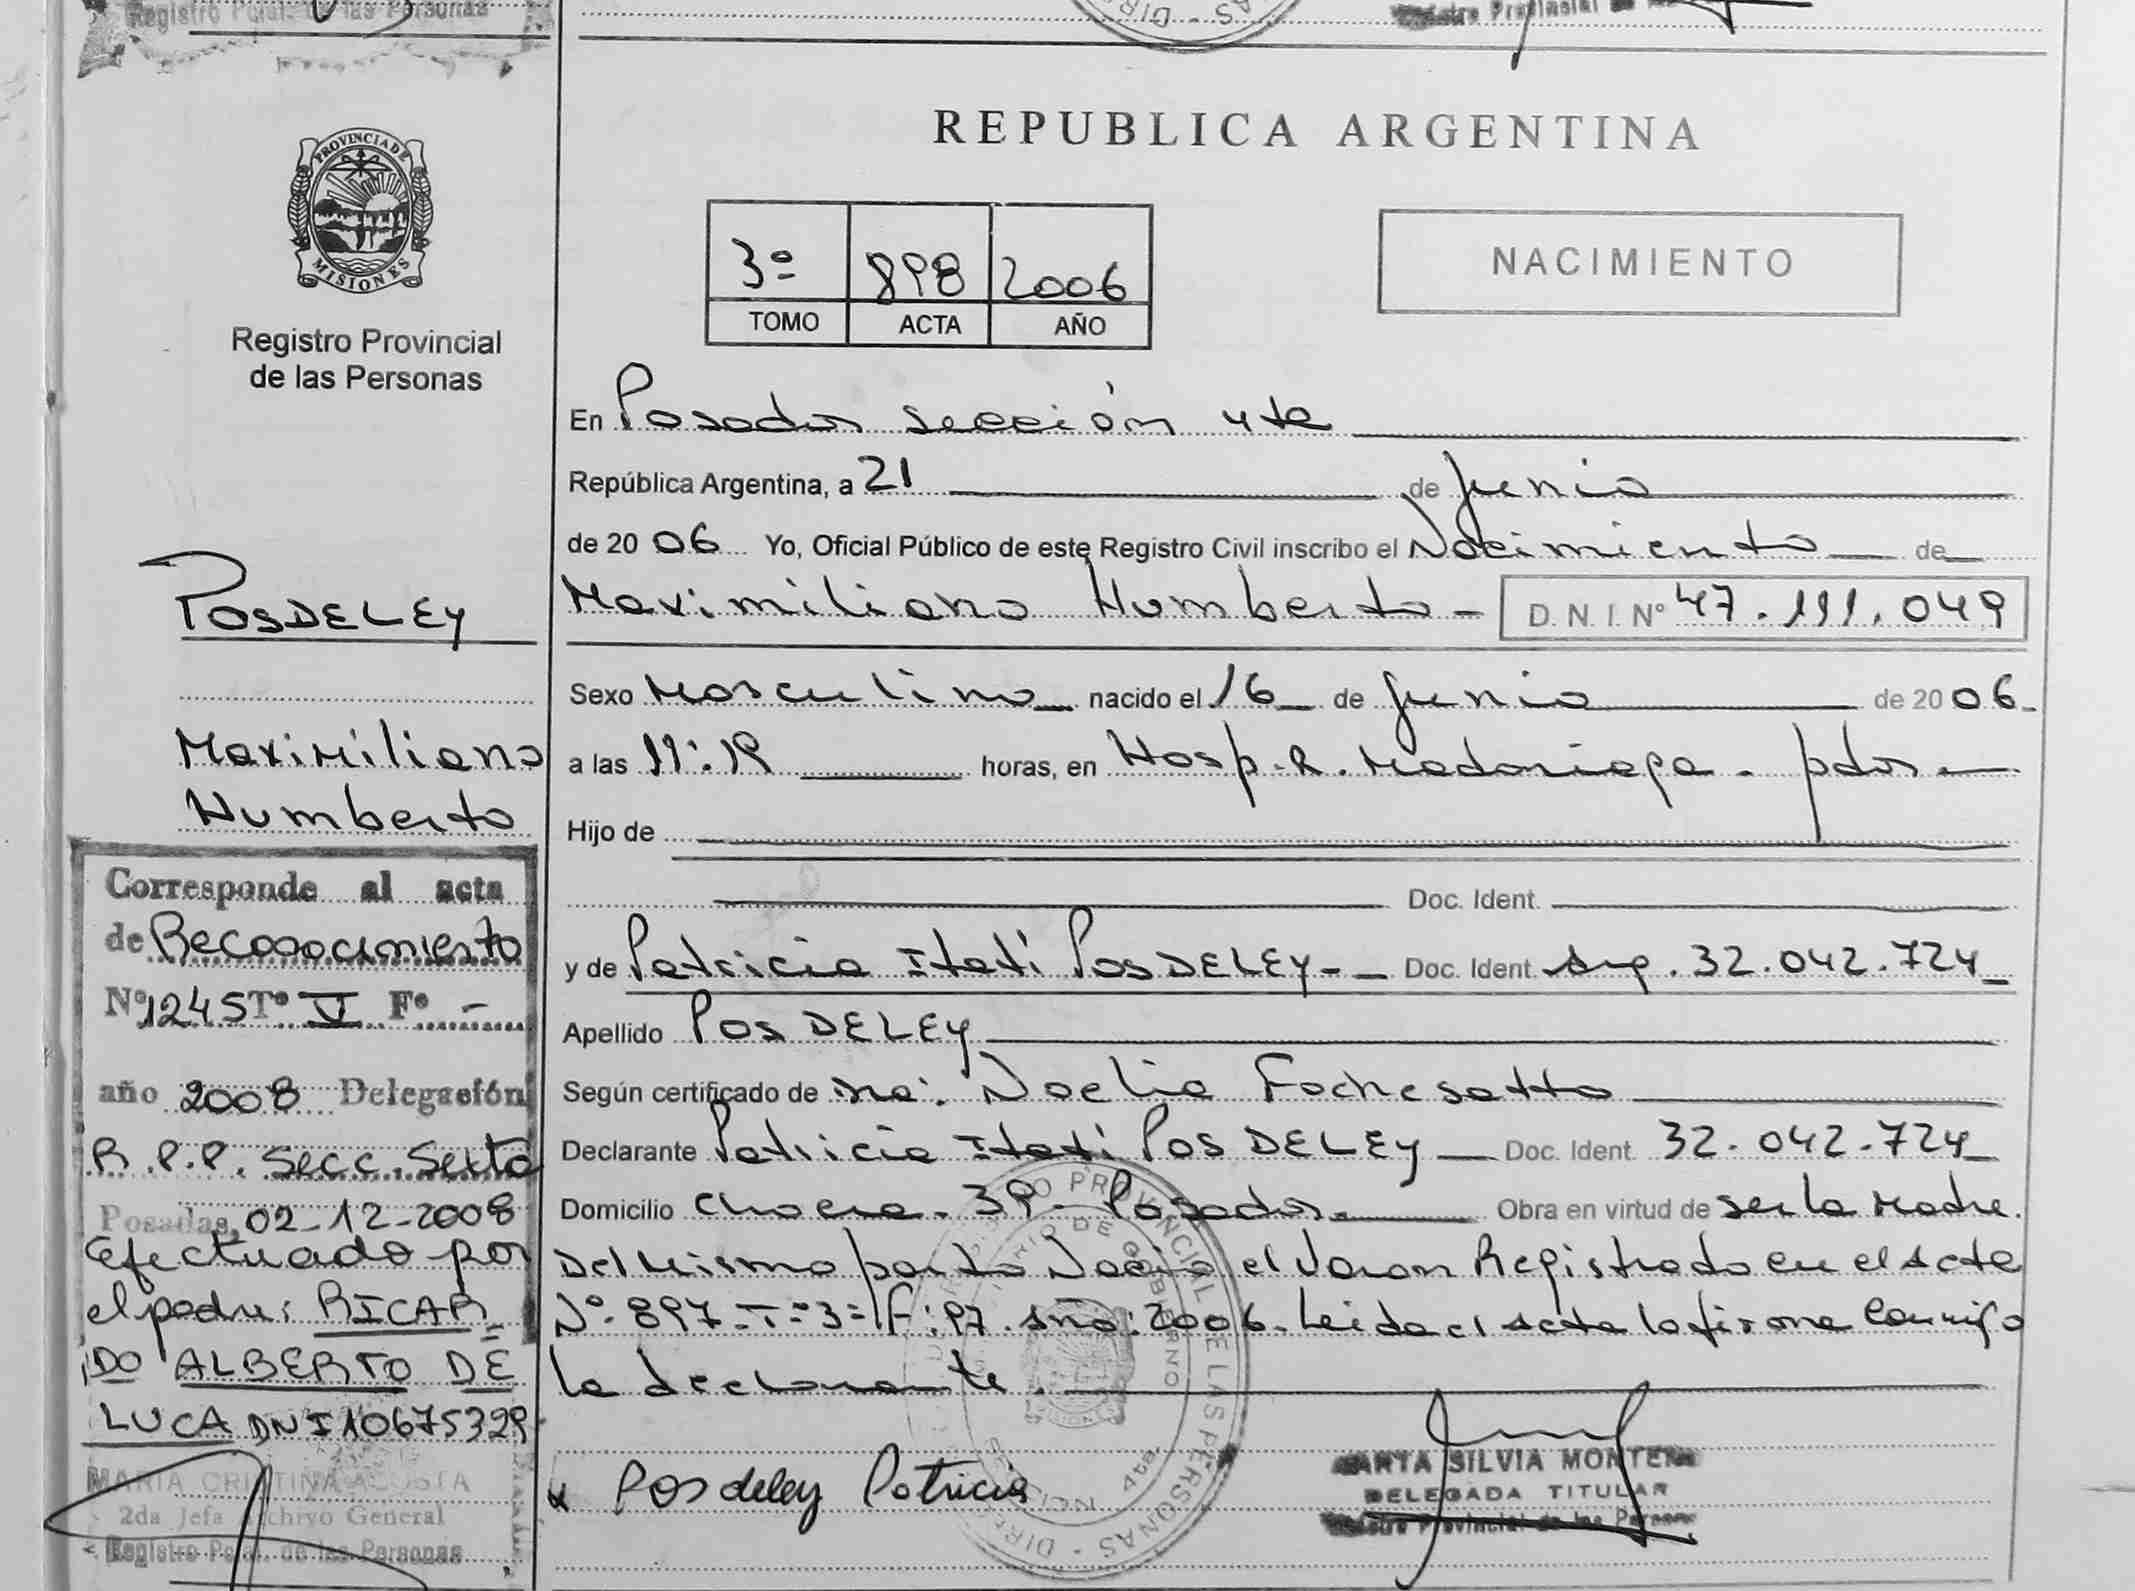 Registro Pcial. de las Personas
REPUBLICA ARGENTINA
PROVINCIA DE
MISIONES
Registro Provincial
de las Personas
3º 898 2006
TOMO ACTA AÑO
NACIMIENTO
En Posadas sección 4ta
República Argentina, a 21 de Junio
de 20 06 Yo, Oficial Público de este Registro Civil inscribo el Nacimiento de
Maximiliano Humberto - D. N. I. Nº 47.191.049
Sexo Masculino nacido el 16 de Junio de 20 06
a las 11:19 horas, en Hosp. R. Madariaga. pdas
Hijo de
Doc. Ident.
y de Patricia Itatí POSDELEY - Doc. Ident. Arg. 32.042.724
Apellido POSDELEY
Según certificado de Noelia Fochesatto
Declarante Patricia Itatí POSDELEY Doc. Ident. 32.042.724
Domicilio 39 - Posadas Obra en virtud de ser la Madre.
Del Mismo parto Nació el Varon Registrado en el Acta
Nº 897 - Tº 3º - F: 97. Año: 2006. Leida el Acta la firma conmigo
la declarante.
POSDELEY
Maximiliano
Humberto
Corresponde al acta
de Reconocimiento
Nº 1245 Tº V Fº -
año 2008 Delegación
R.P.P. Secc. Sexta
Posadas, 02-12-2008
Efectuado por
el padre: RICAR
DO ALBERTO DE
LUCA DNI 10675329
MARIA CRISTINA ACOSTA
2da Jefa Archivo General
Registro Pcial. de las Personas
Posdeley Patricia
MARTA SILVIA MONTENA
DELEGADA TITULAR
Registro Provincial de las Personas